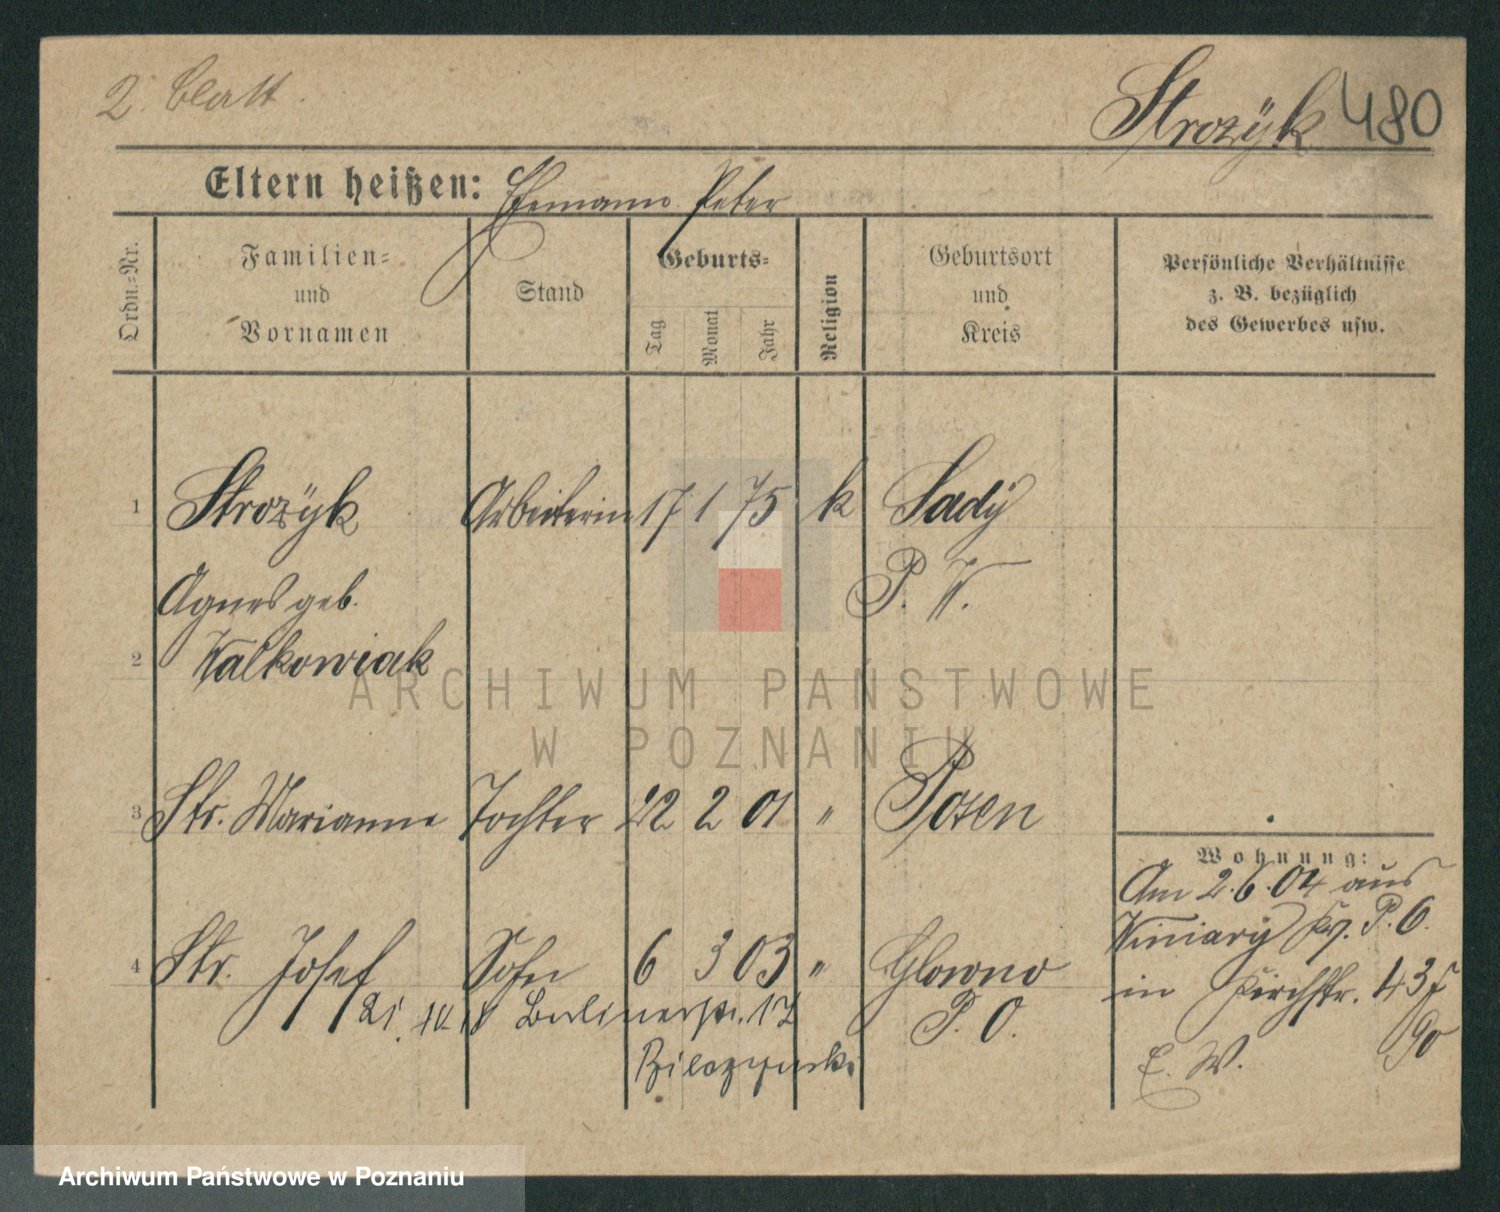 2. Blatt.
Strozÿk 480
Eltern heißen: Ehemann Peter
Ordn.-Nr.
Familien-
und
Vornamen
Stand
Geburts-
Tag
Monat
Jahr
Religion
Geburtsort
und
Kreis
Persönliche Verhältnisse
z. B. bezüglich
des Gewerbes usw.
1 Strozÿk Arbeiterin 17 1 75 k Sadÿ
Agnes geb. P. W.
2 Walkowiak
ARCHIWUM PAŃSTWOWE
W POZNANIU
3 Str. Marianne Tochter 22 2 01 " Posen
Wohnung:
Am 2.6.04 aus
Winiarÿ P. O.
4 Str. Josef Sohn 6 3 03 " Glowno
P. O.
in Kirchstr. 43
90
E. W.
21. Berlinerstr. 17
Archiwum Państwowe w Poznaniu